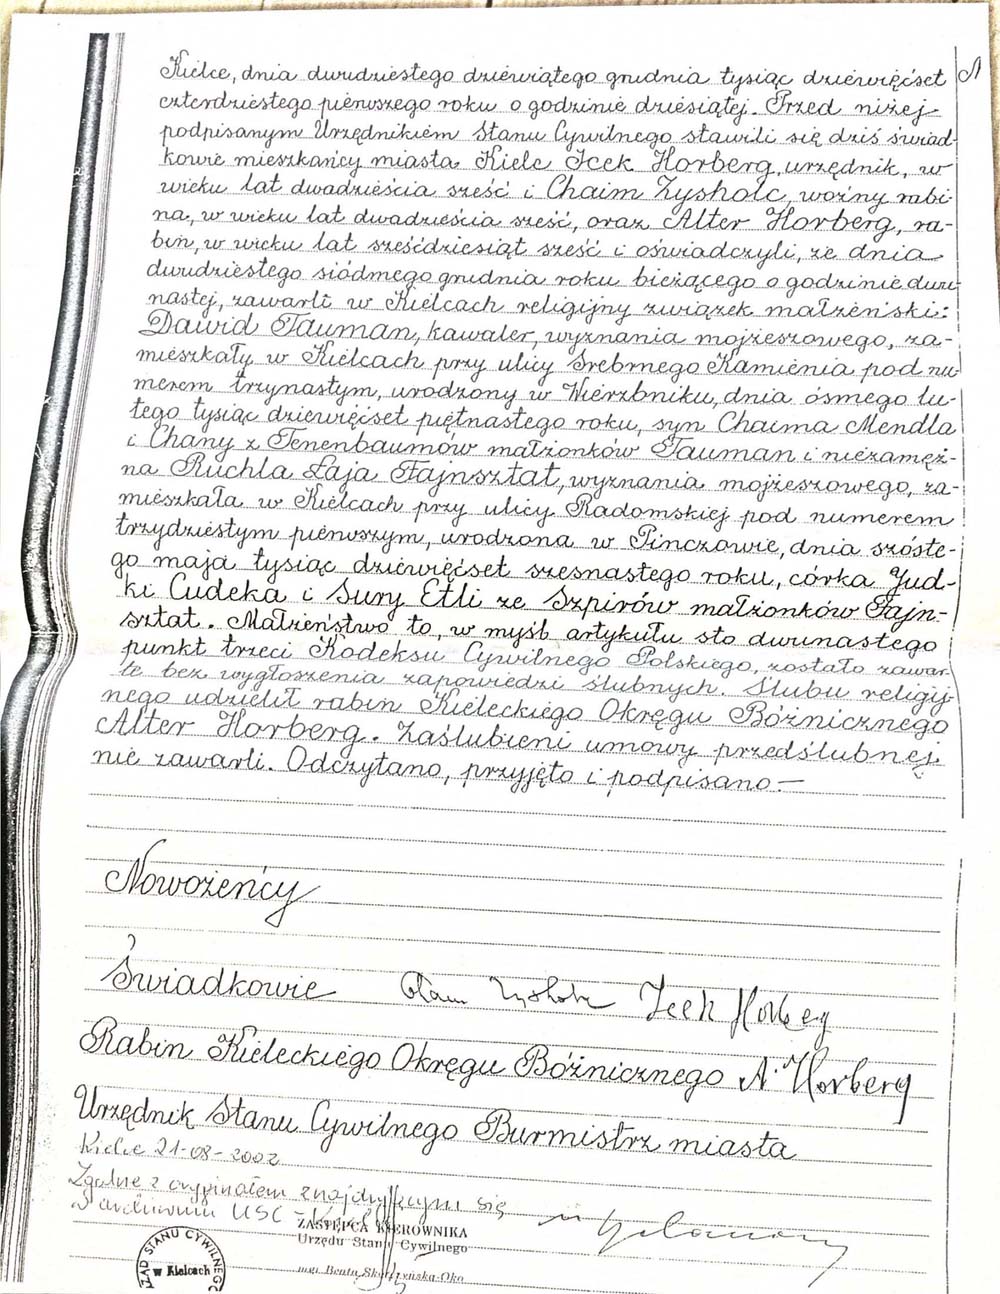 Kielce, dnia dwudziestego dziewiątego grudnia tysiąc dziewięćset
czterdziestego pierwszego roku o godzinie dziesiątej. Przed niżej
podpisanym Urzędnikiem Stanu Cywilnego stawili się dziś świad-
kowie mieszkańcy miasta Kielc Icek Horberg, urzędnik, w
wieku lat dwadzieścia sześć i Chaim Zysholc, woźny rabi-
na, w wieku lat dwadzieścia sześć, oraz Alter Horberg, ra-
bin, w wieku lat sześćdziesiąt sześć i oświadczyli, że dnia
dwudziestego siódmego grudnia roku bieżącego o godzinie dwu-
nastej, zawarli w Kielcach religijny związek małżeński:
Dawid Tauman, kawaler, wyznania mojżeszowego, za-
mieszkały w Kielcach przy ulicy Srebrnego Kamienia pod nu-
merem trzynastym, urodzony w Wierzbniku, dnia ósmego lu-
tego tysiąc dziewięćset piętnastego roku, syn Chaima Mendla
i Chany z Tenenbaumów małżonków Tauman i niezamęż-
na Ruchla Łaja Fajnsztat, wyznania mojżeszowego, za-
mieszkała w Kielcach przy ulicy Radomskiej pod numerem
trzydziestym pierwszym, urodzona w Pinczowie, dnia szóste-
go maja tysiąc dziewięćset szesnastego roku, córka Jud-
ki Cudeka i Sury Etli ze Szpirów małżonków Fajn-
sztat. Małżeństwo to, w myśl artykułu sto dwunastego
punkt trzeci Kodeksu Cywilnego Polskiego, zostało zawar-
te bez wygłoszenia zapowiedzi ślubnych. Ślubu religij-
nego udzielił rabin Kieleckiego Okręgu Bóżnicznego
Alter Horberg. Zaślubieni umowy przedślubnej
nie zawarli. Odczytano, przyjęto i podpisano —
Nowożeńcy
Świadkowie Chaim Zysholc Icek Horberg
Rabin Kieleckiego Okręgu Bóżnicznego A. Horberg
Urzędnik Stanu Cywilnego Burmistrz miasta
Kielce 21-08-2002
Zgodne z oryginałem znajdującym się
w archiwum USC -
ZASTĘPCA KIEROWNIKA
Urzędu Stanu Cywilnego
mgr Beata
URZĄD STANU CYWILNEGO
w Kielcach